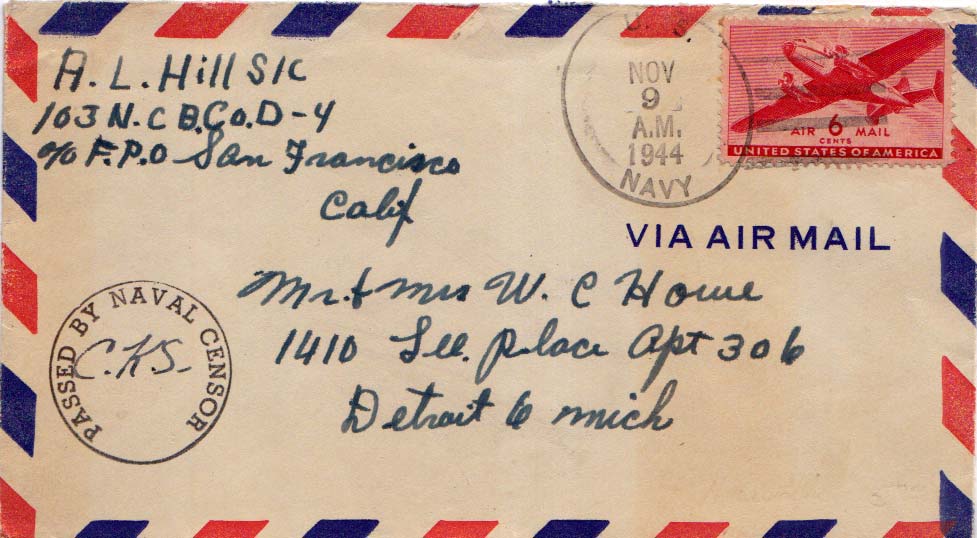 A. L. Hill S1c
103 N.C B. Co. D-4
c/o F.P.O San Francisco
Calif
U. S.
NOV
9
A.M.
1944
NAVY
AIR 6 MAIL
CENTS
UNITED STATES OF AMERICA
VIA AIR MAIL
Mr. & Mrs W. C Howe
1410 Lee. Place Apt 306
Detroit 6 Mich
PASSED BY NAVAL CENSOR
C.K.S.